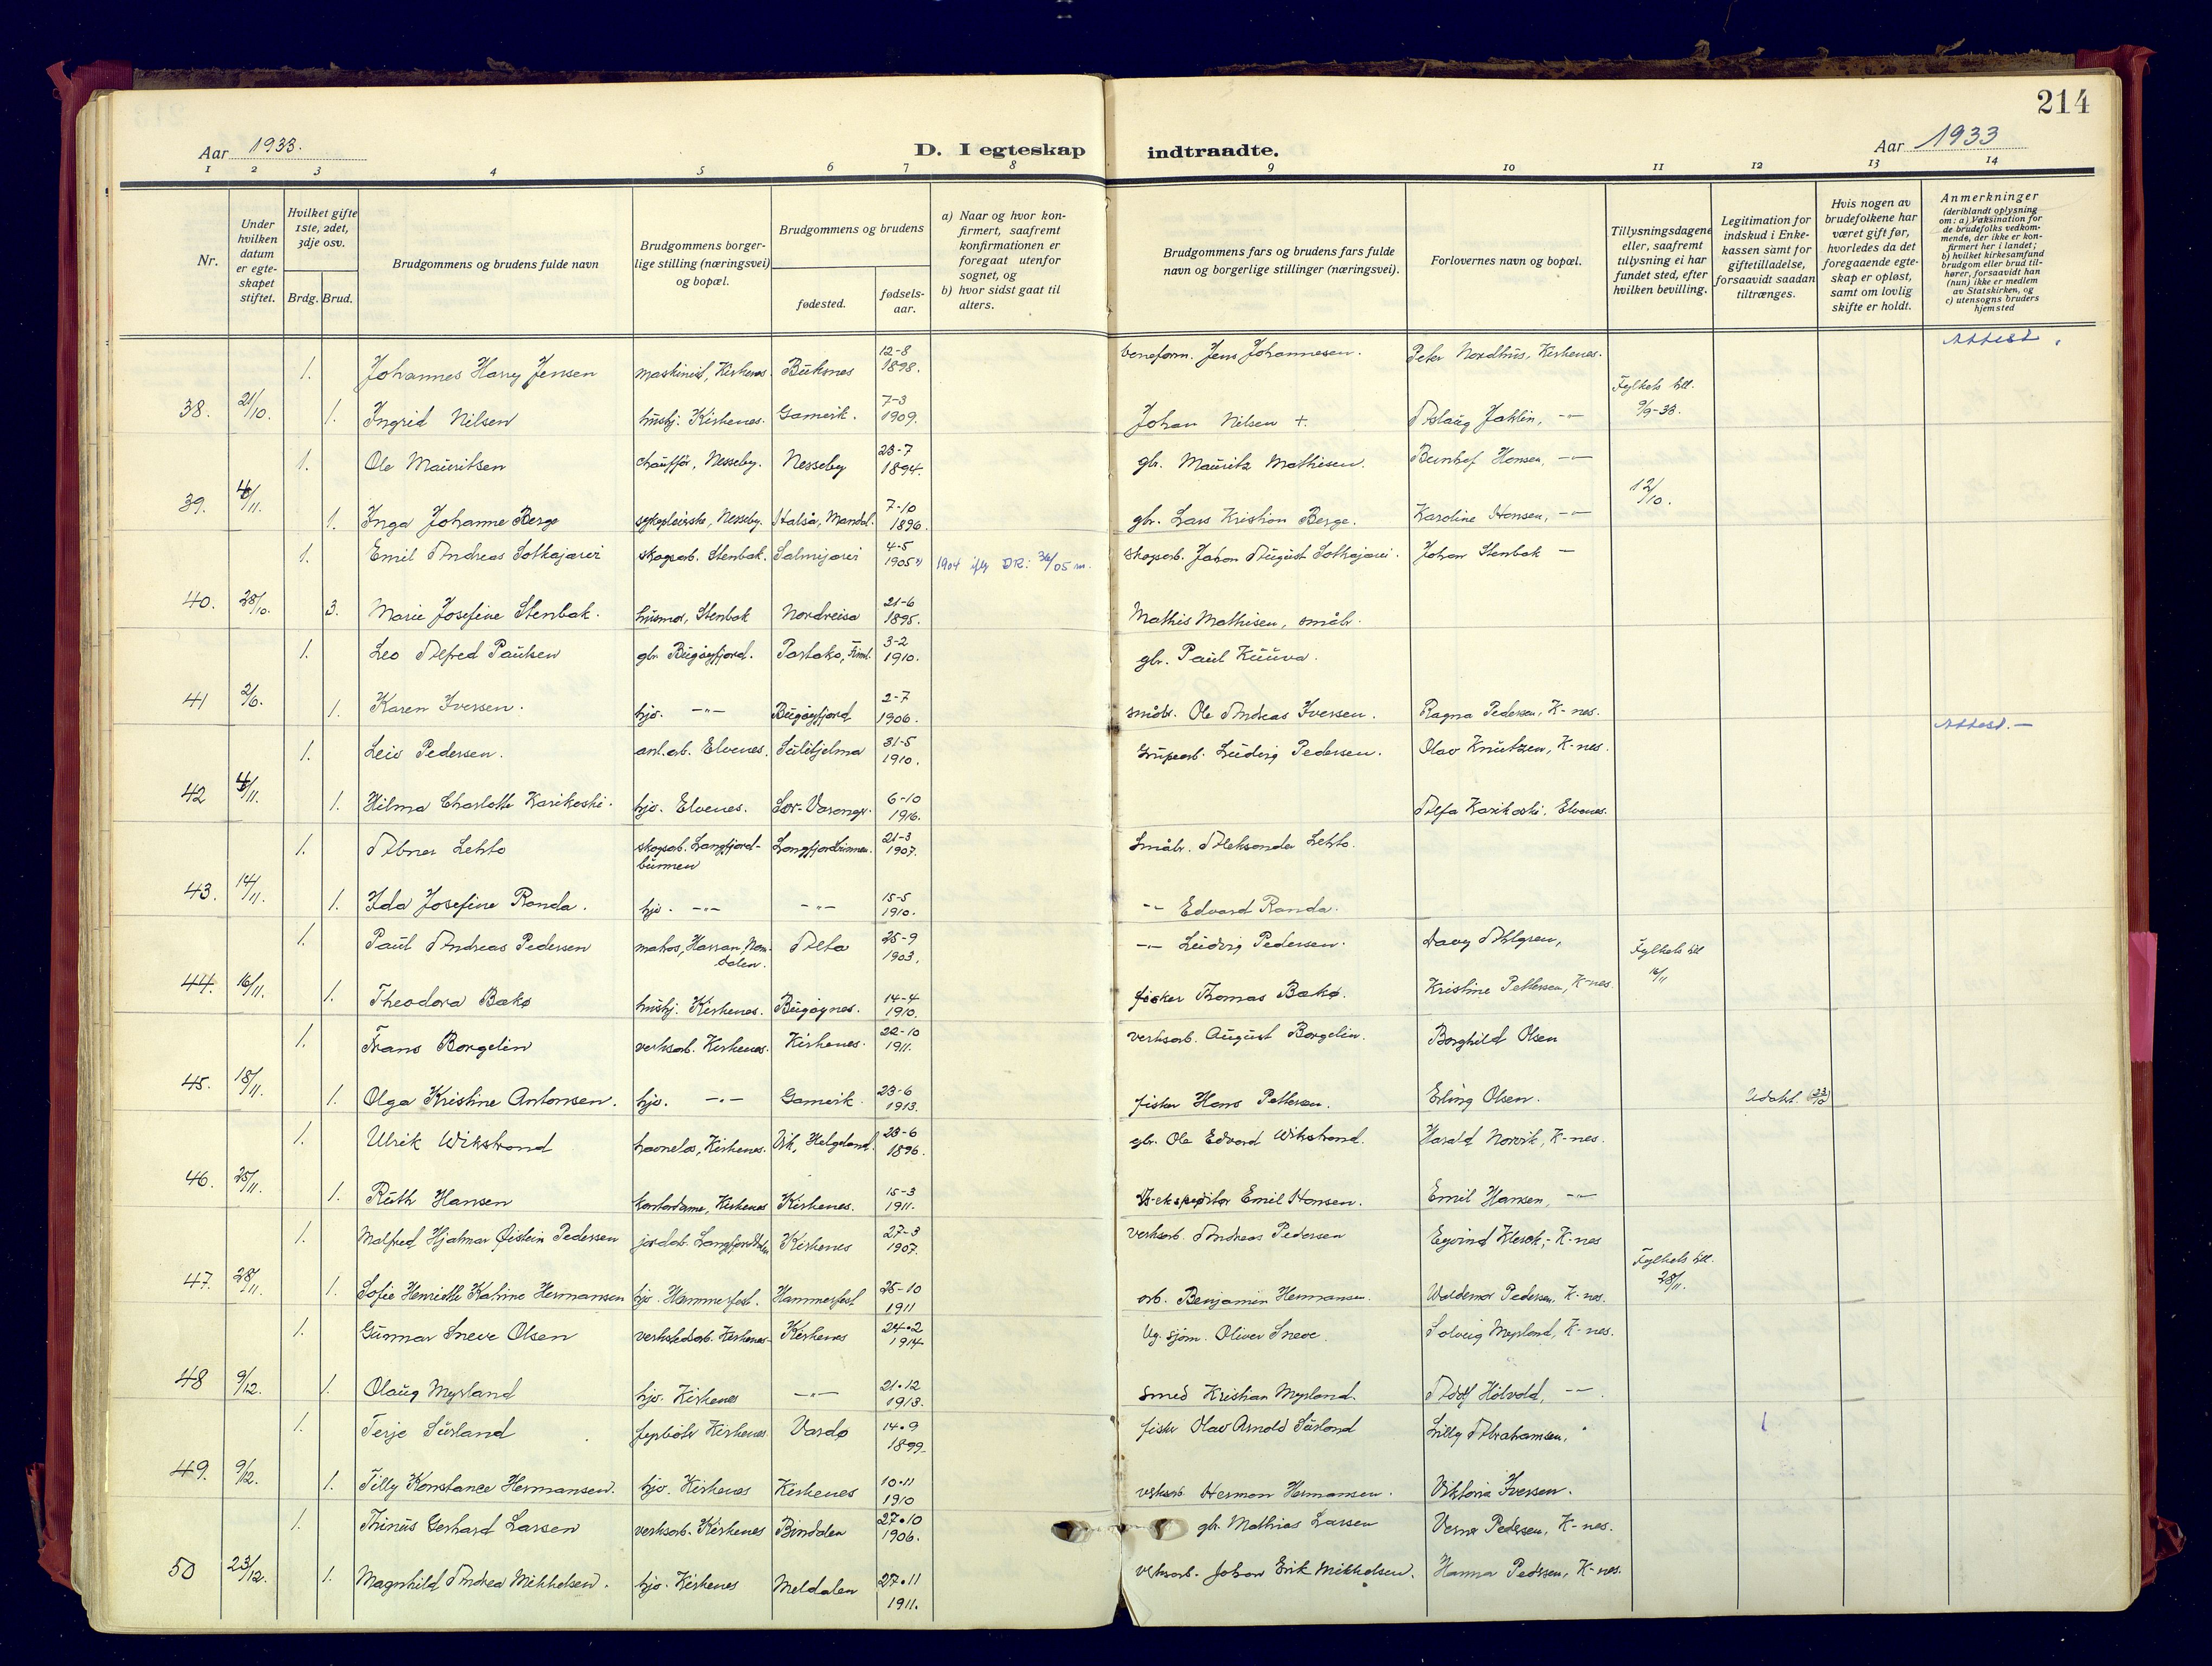 214
Aar 1933.
D. I egteskap indtraadte.
Aar 1933
1 2 3 4 5 6 7 8 9 10 11 12 13 14
Nr.
Under hvilken datum er egte-skapet stiftet.
Hvilket gifte 1ste, 2det, 3dje osv.
Brdg. Brud.
Brudgommens og brudens fulde navn
Brudgommens borger-lige stilling (næringsvei) og bopæl.
Brudgommens og brudens
fødested.
fødsels-aar.
a) Naar og hvor kon-firmert, saafremt konfirmationen er foregaat utenfor sognet, og
b) hvor sidst gaat til alters.
Brudgommens fars og brudens fars fulde navn og borgerlige stillinger (næringsvei).
Forlovernes navn og bopæl.
Tillysningsdagene eller, saafremt tillysning ei har fundet sted, efter hvilken bevilling.
Legitimation for indskud i Enke-kassen samt for giftetilladelse, forsaavidt saadan tiltrænges.
Hvis nogen av brudefolkene har været gift før, hvorledes da det foregaaende egte-skap er opløst, samt om lovlig skifte er holdt.
Anmerkninger (deriblandt oplysning om: a) Vaksination for de brudefolks vedkom-mende, der ikke er kon-firmert her i landet; b) hvilket kirkesamfund brudgom eller brud til-hører, forsaavidt han (hun) ikke er medlem av Statskirken, og c) utensogns bruders hjemsted
1. Johannes Harry Jensen maskinist, Kirkenes. Buksnes 12-8 1898. Jens Johannesen. Peter Nordhus, Kirkenes. Attest.
38. 21/10. 1. Ingrid Nilsen hushj. Kirkenes. Gamvik. 7-3 1909. Johan Nilsen +. Aslaug Jaklin, -"- Fylkets till. 9/9-33.
1. Ole Mauritsen chauffør, Nesseby. Nesseby 23-7 1894. gbr. Mauritz Mathisen. Hansen, -"-
39. 4/11. 1. Inga Johanne Berge sykepleierske, Nesseby. Halså, Mandal. 7-10 1896. gbr. Lars Kristian Berge. Karoline Hansen, -"- 12/10.
1. Emil Andreas Sotkajærvi skogsarb. Stenbak. Salmijærvi 4-5 1905 1904 ifg DR: 36/05 m. skogsarb. Johan August Sotkajærvi. Johan Stenbak -
40. 28/10. 3. Marie Josefine Stenbak. husmor, Stenbak Nordreisa 21-6 1895. Mathis Mathisen, småbr.
1. Leo Alfred Paulsen gbr. Bugøyfjord. 3-2 1910. gbr. Paul Kuuva.
41 2/6. 1. Karen Iversen. hjv. -"- Bugøyfjord 2-7 1906. småbr. Ole Andreas Iversen. Ragna Pedersen, K-nes.
1. Leiv Pedersen. anl.arb. Elvenes. Sulitjelma 31-5 1910. Grupearb. Ludvig Pedersen. Olav Knutzen, K-nes. Attest. -
42 4/11. 1. Hilma Charlotte Karikoski. hjv. Elvenes. Sør-Varanger. 6-10 1916. Alfa Karikoski, Elvenes.
1. Abner Lehto skogsarb. Langfjord-bunnen Langfjordbunnen. 21-3 1907. Småbr. Aleksander Lehto.
43. 14/11. 1. Ida Josefine Randa. hjv. -"- -"- 15-5 1910. -"- Edvard Randa.
1. Paul Andreas Pedersen matros, Nam-dalen. Alta 25-9 1903. -"- Ludvig Pedersen. Ahlgren, Fylkets till
44. 16/11. 1. Theodora Bækø hushj. Kirkenes. Bugøynes. 14-4 1910. fisker Thomas Bækø. Kristine Pettersen, K-nes. 16/11
1. Frans Borgelin verksarb. Kirkenes. Kirkenes. 22-10 1911. verksarb. August Borgelin. Borghild Olsen
45. 18/11. 1. Olga Kristine Antonsen. hjv. -"- Gamvik. 23-6 1913. fisker Hans Pettersen. Erling Olsen.
1. Ulrik Wikstrand havnelos, Kirkenes. Vik, Helgeland. 23-6 1896. gbr. Ole Edvard Wikstrand. Harald Norvik, K-nes.
46. 25/11. 1. Ruth Hansen kontordame, Kirkenes Kirkenes. 15-3 1911. ekspeditør Emil Hansen. Emil Hansen, -"-
1. Malfred Hjalmar Øistein Pedersen jordarb. Kirkenes 27-3 1907. verksarb. Andreas Pedersen Eyvind Klerck, K-nes
47. 28/11. 1. Sofie Henriette Katrine Hermansen hjv. Hammerfest. Hammerfest 25-10 1911 arb. Benjamin Hermansen. Waldemar Pedersen, K-nes. Fylkets till. 28/11.
1. Gunnar Sneve Olsen verkstedsarb. Kirkenes Kirkenes 24-2 1914. Ug. sjøm. Oliver Sneve. Solveig Myrland, K-nes.
48 9/12. 1. Olaug Myrland hjv. Kirkenes -"- 21-12 1913. smed Kristian Myrland. Adolf Holvold, -"-.
1. Terje Surland fyrbøter Kirkenes. Vardø 14-9 1899. fisker Olav Arnold Surland Lilly Abrahamsen, "
49. 9/12. 1. Tilly Konstance Hermansen. hjv. Kirkenes Kirkenes 10-11 1910 verksarb. Herman Hermansen. Viktoria Iversen.
1. Thinus Gerhard Larsen verksarb. Kirkenes Bindalen 27-10 1906. gbr. Mathias Larsen Verner Pedersen, K-nes.
50 23/12. 1. Magnhild Andrea Mikkelsen. hjv. Kirkenes Meldalen 27-11 1911. verksarb. Johan Erik Mikkelsen. Hanna Pedersen, K-nes.